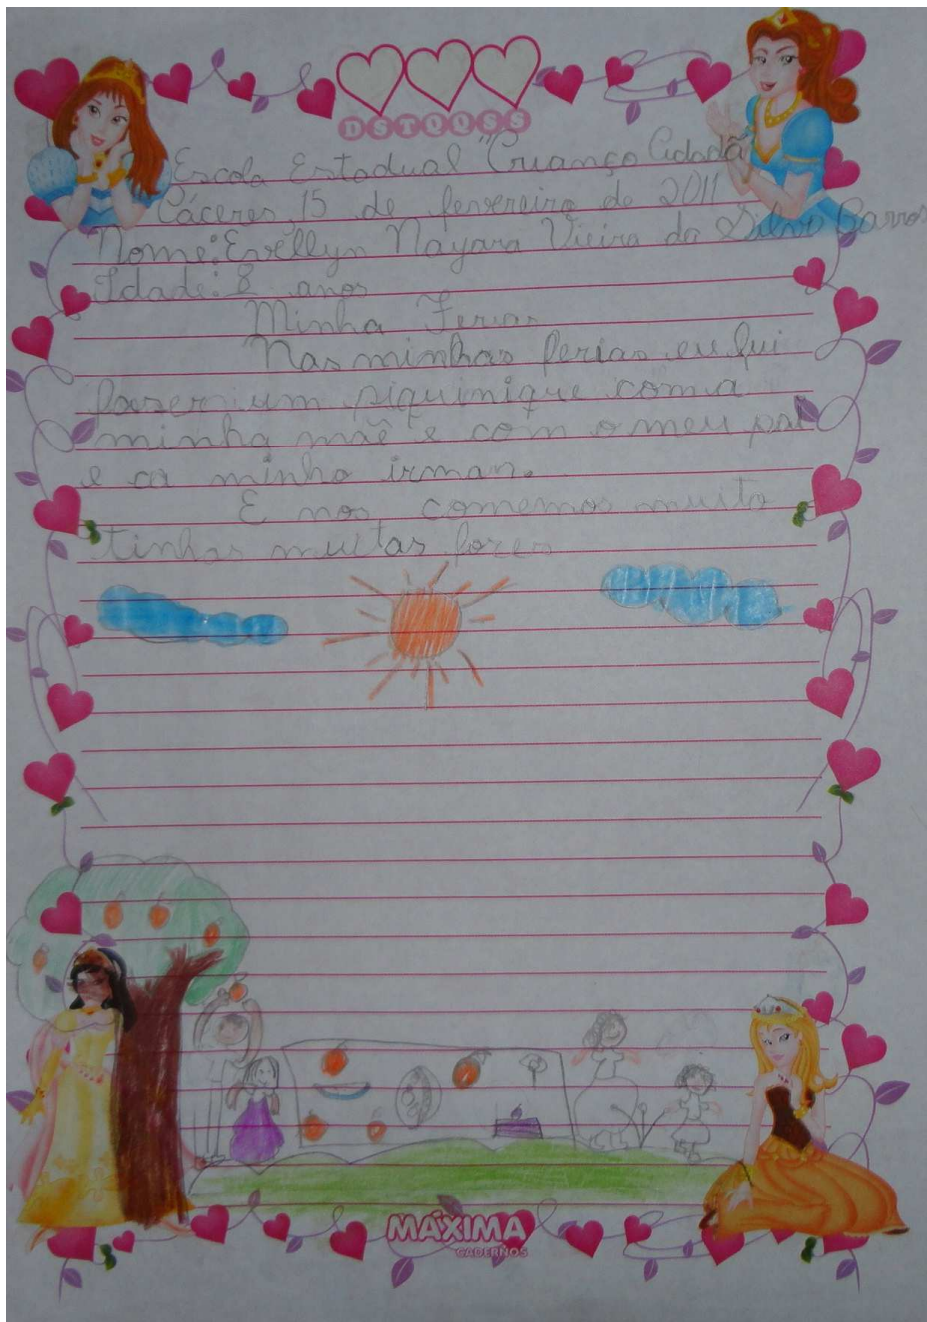 DSTQQSS
Escola Estadual "Criança Cidadã"
Cáceres, 15 de fevereiro de 2011
Nome: Evellyn Nayara Vieira da Silva Barros
Idade: 8 anos
Minha Ferias
Nas minhas ferias eu fui
faser um piquinique com a
minha mãe e com o meu pai
e ca minha irman.
E nos comemos muito
tinhas muitas fores
MÁXIMA
CADERNOS